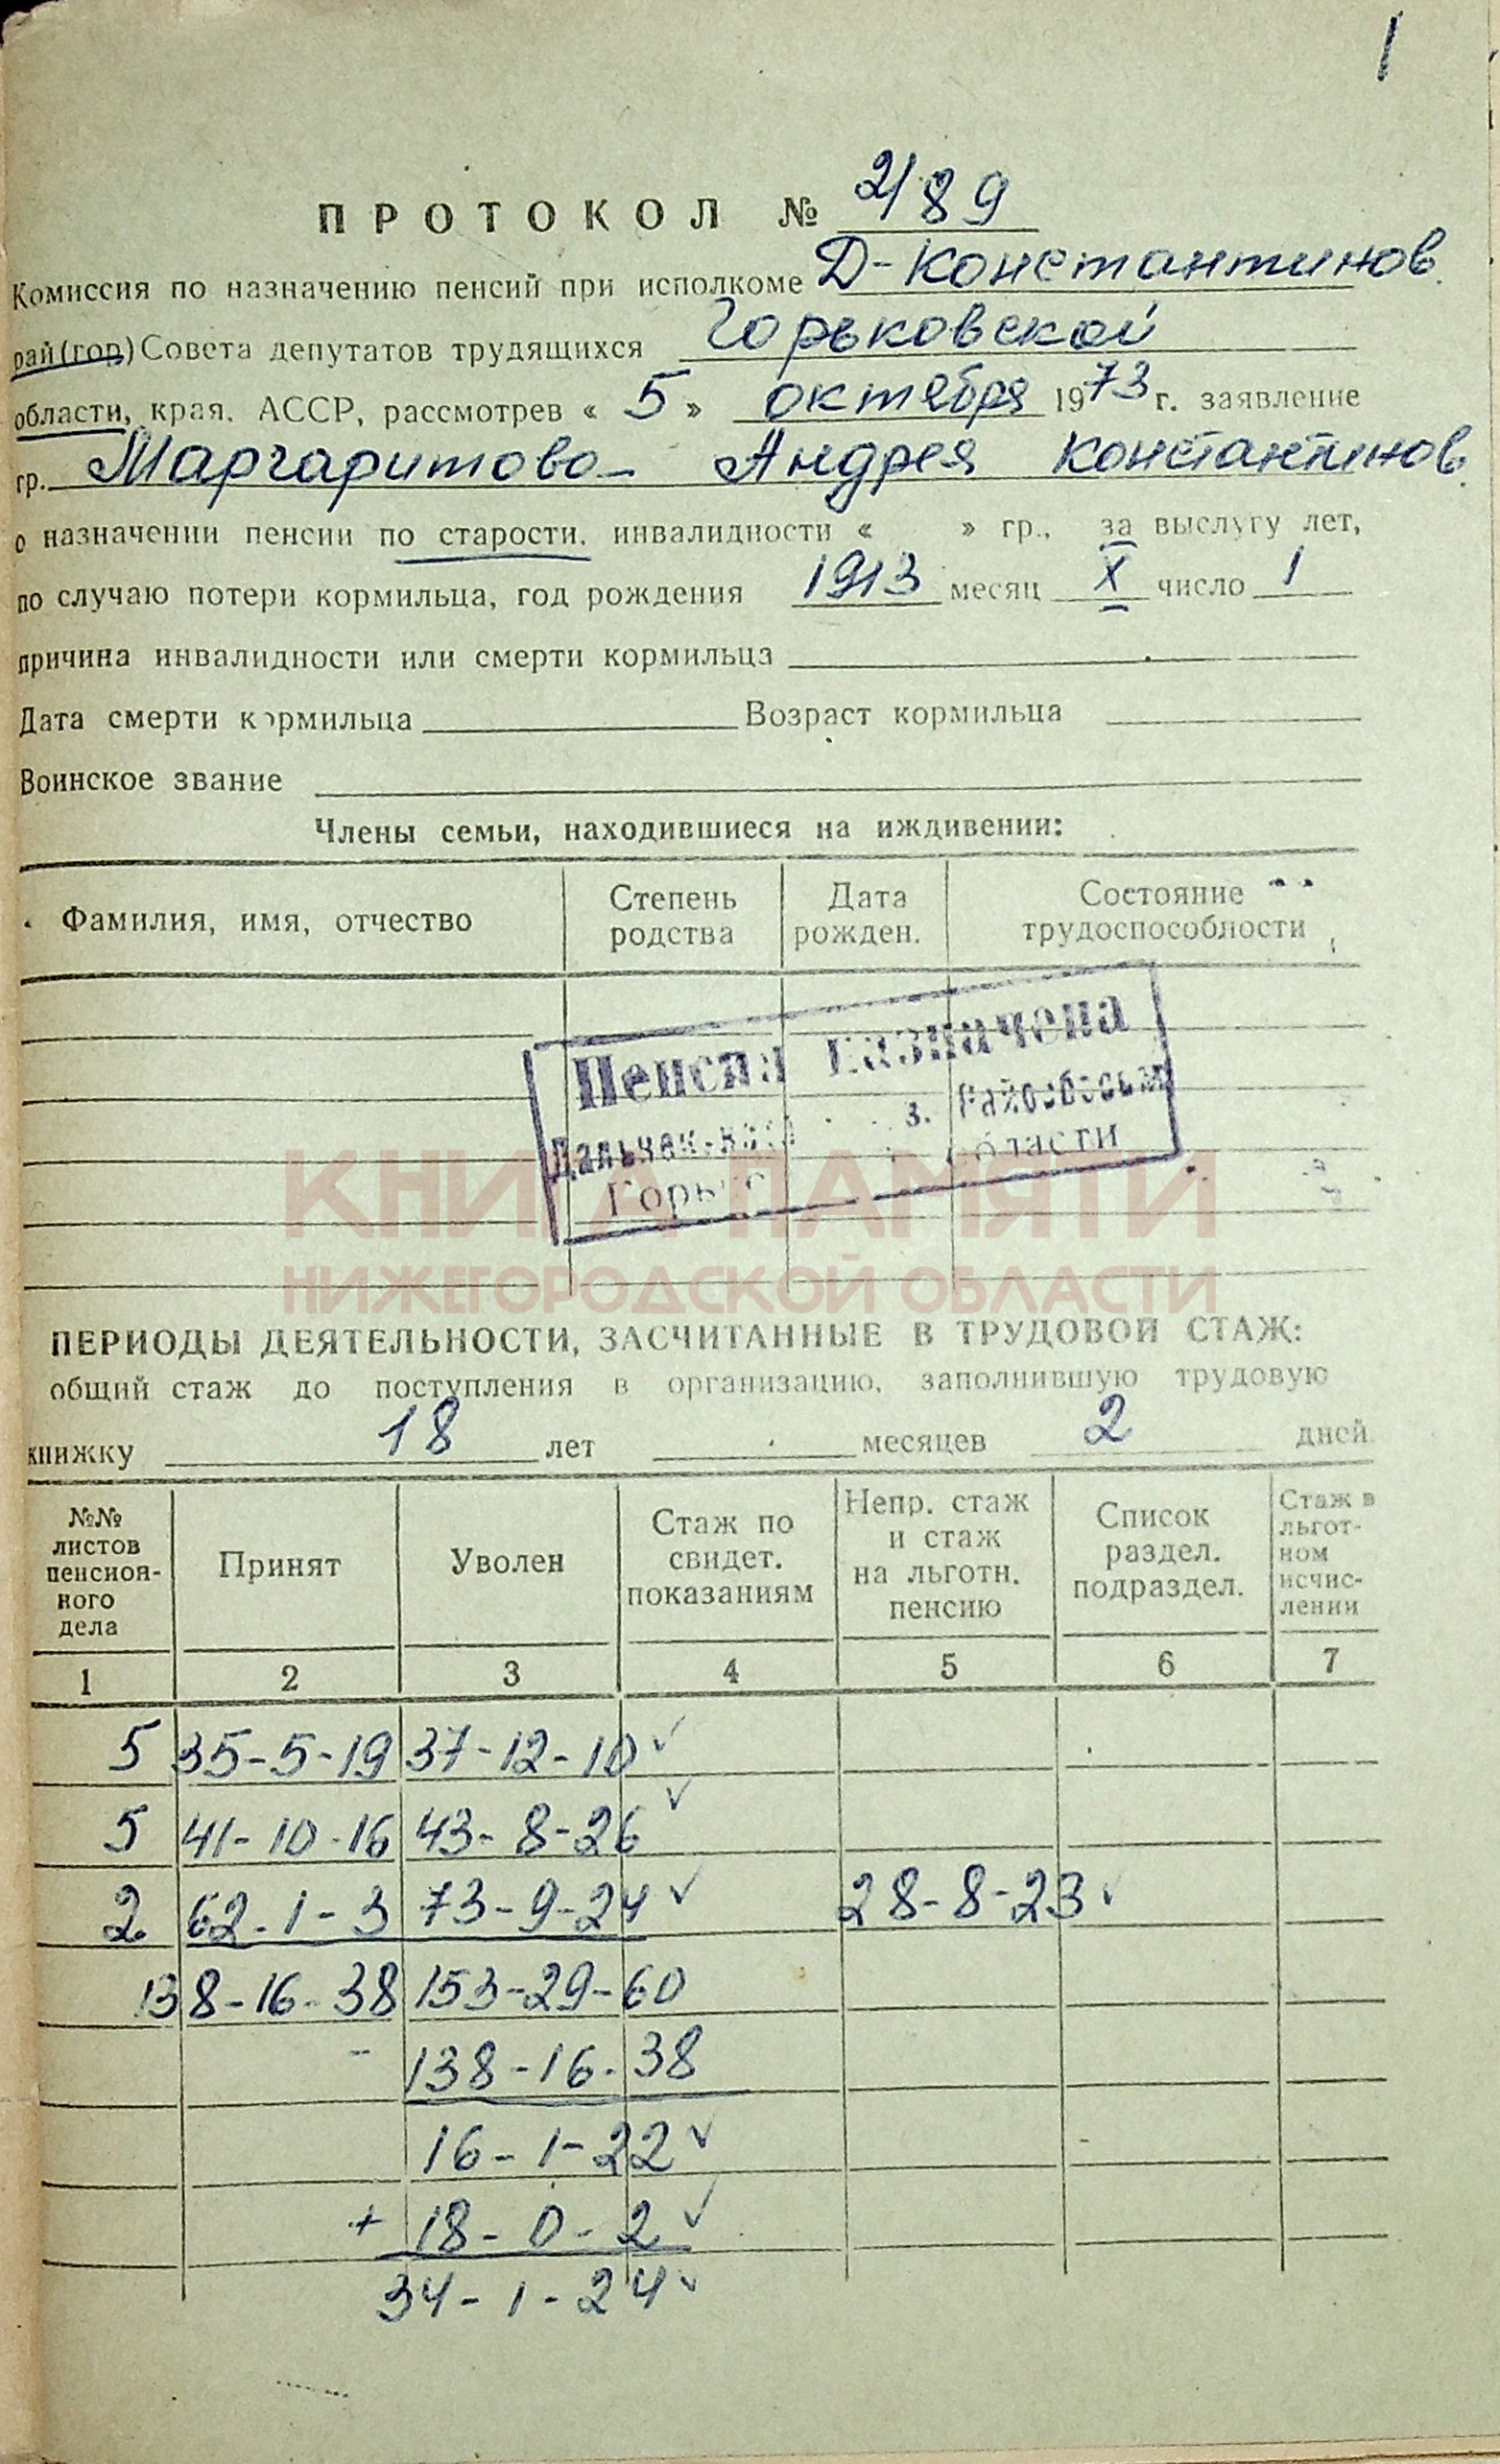 1
ПРОТОКОЛ № 2189
Комиссия по назначению пенсий при исполкоме Д-Константинов.
рай(гор) Совета депутатов трудящихся Горьковской
области, края, АССР, рассмотрев « 5 » октября 1973 г. заявление
гр. Маргаритова Андрея Константинов.
о назначении пенсии по старости, инвалидности « » гр., за выслугу лет,
по случаю потери кормильца, год рождения 1913 месяц X число 1
причина инвалидности или смерти кормильца
Дата смерти кормильца Возраст кормильца
Воинское звание
Члены семьи, находившиеся на иждивении:
Фамилия, имя, отчество Степень родства Дата рожден. Состояние трудоспособности
Пенсия назначена
области
КНИГА ПАМЯТИ
НИЖЕГОРОДСКОЙ ОБЛАСТИ
ПЕРИОДЫ ДЕЯТЕЛЬНОСТИ, ЗАСЧИТАННЫЕ В ТРУДОВОЙ СТАЖ:
общий стаж до поступления в организацию, заполнившую трудовую
книжку 18 лет месяцев 2 дней
№№ листов пенсион-ного дела Принят Уволен Стаж по свидет. показаниям Непр. стаж и стаж на льготн. пенсию Список раздел. подраздел. Стаж в льгот-ном исчис-лении
1 2 3 4 5 6 7
5 35-5-19 37-12-10
5 41-10-16 43-8-26
2 62-1-3 73-9-24 28-8-23
138-16-38 153-29-60
- 138-16-38
16-1-22
+ 18-0-2
34-1-24